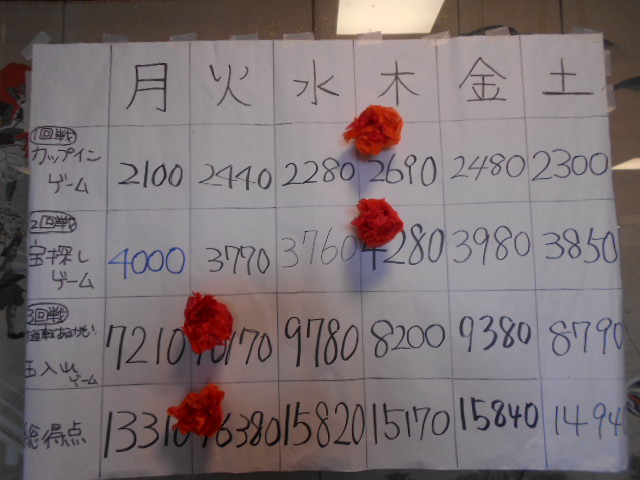 月 火 水 木 金 土
1回戦
カップイン
ゲーム 2100 2440 2280 2690 2480 2300
2回戦
宝探し
ゲーム 4000 3770 3760 4280 3980 3850
3回戦
玉入れ
ゲーム 7210 10170 9780 8200 9380 8790
総得点 13310 16380 15820 15170 15840 1494